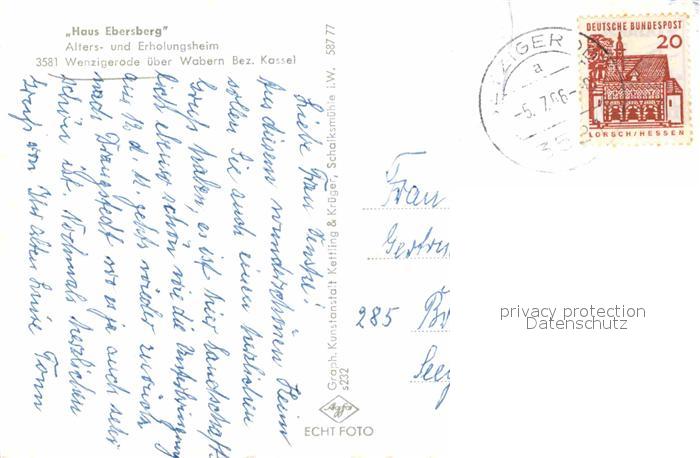 „Haus Ebersberg"
Alters- und Erholungsheim
3581 Wenzigerode über Wabern Bez. Kassel
Liebe Frau
Aus diesem wunderschönen Heim
sollen Sie auch einen herzlichen
Gruß haben, es ist hier landschaft-
lich ebenso schön wie die Umgebung
am 12. d. M. geht's wieder zurück
nach wo es ja auch sehr
schön ist. Nochmals herzlichen
Gruß von Ihr alten Luise Tonn
Graph. Kunstanstalt Kettling & Krüger, Schalksmühle i.W. 587 77
s232
Agfa
ECHT FOTO
ZIGER
a
-5.7.66-8
358
DEUTSCHE BUNDESPOST
20
LORSCH/HESSEN
Frau
Gertru
285 Br
See
privacy protection
Datenschutz